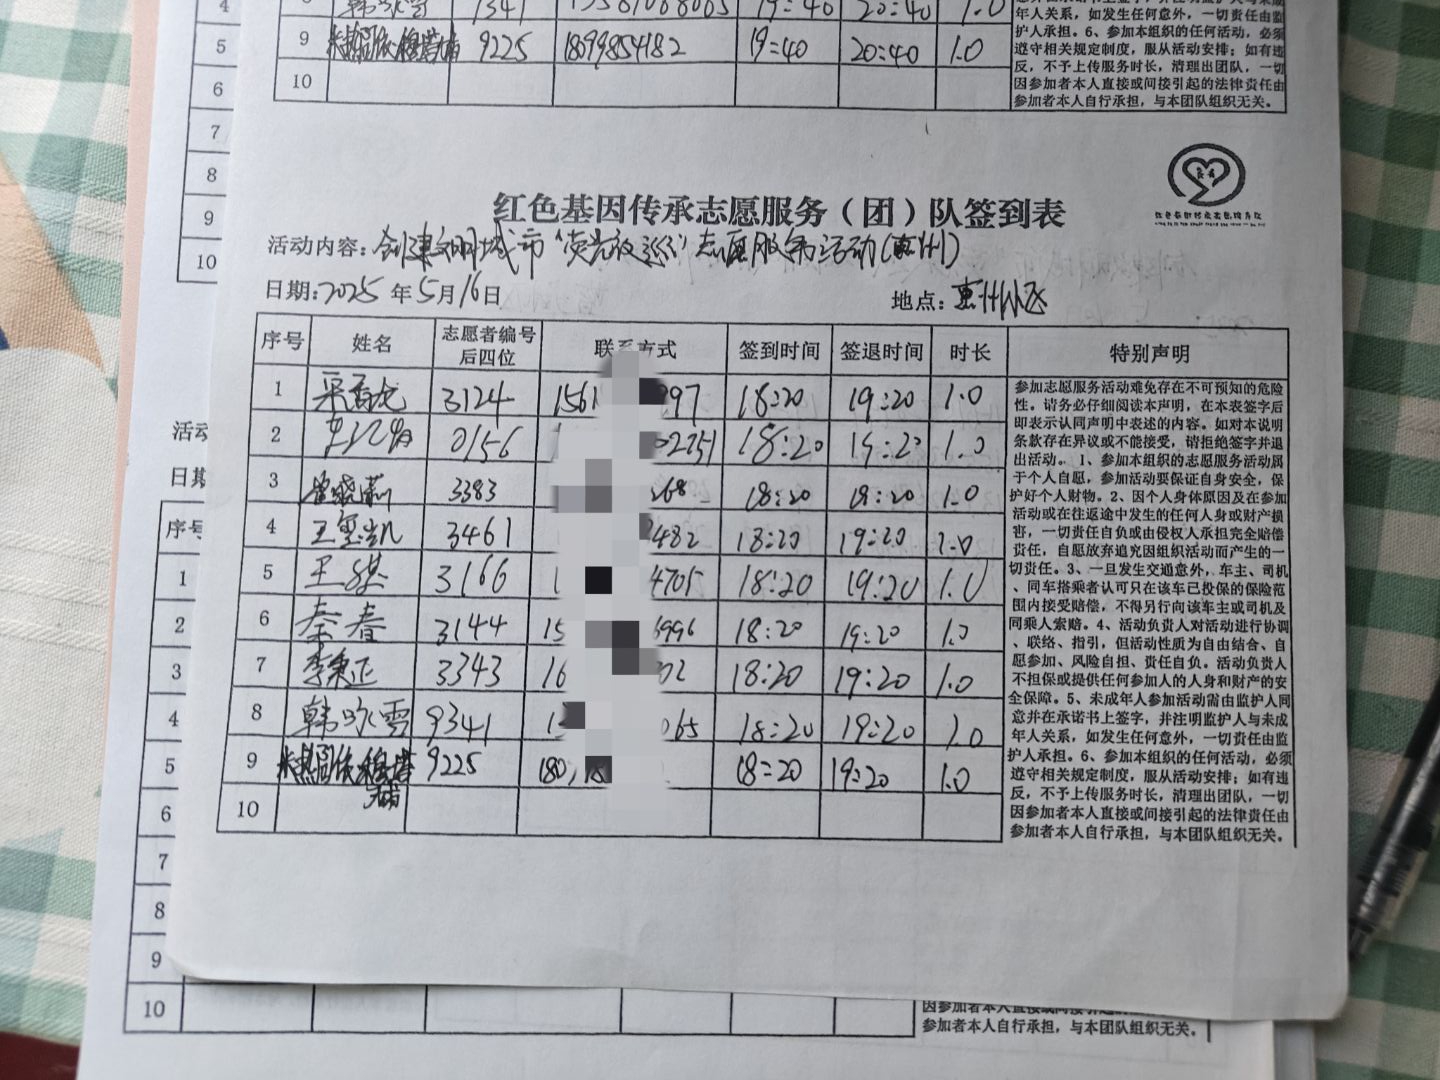 4 1341 19:40 20:40 1.0
5 9 9225 18099854182 19:40 20:40 1.0
6 10
年人关系，如发生任何意外，一切责任由监
护人承担。6、参加本组织的任何活动，必须
遵守相关规定制度，服从活动安排；如有违
反，不予上传服务时长，清理出团队，一切
因参加者本人直接或间接引起的法律责任由
参加者本人自行承担，与本团队组织无关。
7
8
9
10
红色基因传承志愿服务（团）队签到表
活动内容：创建文明城市“荧光夜巡”志愿服务活动(惠州)
日期:2025年5月16日 地点：惠州小区
序号 姓名 志愿者编号后四位 联系方式 签到时间 签退时间 时长 特别声明
1 3124 1561 997 18:20 19:20 1.0
2 0156 2251 18:20 19:20 1.0
3 3383 268 18:20 19:20 1.0
4 3461 482 18:20 19:20 1.0
5 王 3166 1 4705 18:20 19:20 1.0
6 秦春 3144 15 996 18:20 19:20 1.0
7 李秉正 3343 16 02 18:20 19:20 1.0
8 韩咏雪 9341 1 065 18:20 19:20 1.0
9 9225 180 18:20 19:20 1.0
10
参加志愿服务活动难免存在不可预知的危险
性。请务必仔细阅读本声明，在本表签字后
即表示认同声明中表述的内容。如对本说明
条款存在异议或不能接受，请拒绝签字并退
出活动。1、参加本组织的志愿服务活动属
于个人自愿，参加活动要保证自身安全，保
护好个人财物。2、因个人身体原因及在参加
活动或在往返途中发生的任何人身或财产损
害，一切责任自负或由侵权人承担完全赔偿
责任，自愿放弃追究因组织活动而产生的一
切责任。3、一旦发生交通意外，车主、司机
、同车搭乘者认可只在该车已投保的保险范
围内接受赔偿，不得另行向该车主或司机及
同乘人索赔。4、活动负责人对活动进行协调
、联络、指引，但活动性质为自由结合、自
愿参加、风险自担、责任自负。活动负责人
不担保或提供任何参加人的人身和财产的安
全保障。5、未成年人参加活动需由监护人同
意并在承诺书上签字，并注明监护人与未成
年人关系，如发生任何意外，一切责任由监
护人承担。6、参加本组织的任何活动，必须
遵守相关规定制度，服从活动安排；如有违
反，不予上传服务时长，清理出团队，一切
因参加者本人直接或间接引起的法律责任由
参加者本人自行承担，与本团队组织无关。
活动
日期
序号
1
2
3
4
5
6
7
8
9
10
参加者本人自行承担，与本团队组织无关。